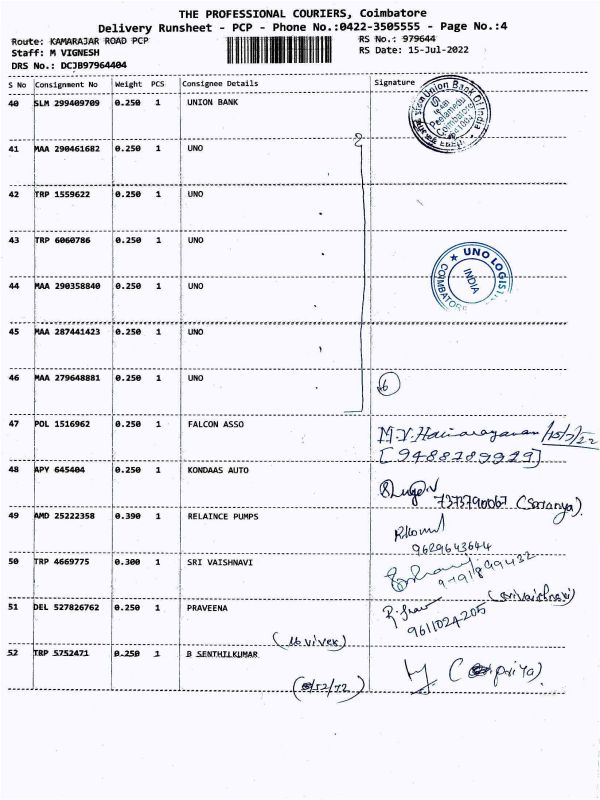 THE PROFESSIONAL COURIERS, Coimbatore
Delivery Runsheet - PCP - Phone No.:0422-3505555 - Page No.:4
Route: KAMARAJAR ROAD PCP RS No.: 979644
Staff: M VIGNESH RS Date: 15-Jul-2022
DRS No.: DCJB97964404
S No Consignment No Weight PCS Consignee Details Signature
40 SLM 299409709 0.250 1 UNION BANK
Union Bank Of India
Coimbatore
41 MAA 290461682 0.250 1 UNO
42 TRP 1559622 0.250 1 UNO
43 TRP 6060786 0.250 1 UNO
★ UNO LOGIST
INDIA
COIMBATORE
44 MAA 290358840 0.250 1 UNO
45 MAA 287441423 0.250 1 UNO
46 MAA 279648881 0.250 1 UNO 6
47 POL 1516962 0.250 1 FALCON ASSO
M.V. 15/7/22
48 APY 645404 0.250 1 KONDAAS AUTO
7373790067 (Saranya)
49 AMD 25222358 0.390 1 RELAINCE PUMPS
9629643644
50 TRP 4669775 0.300 1 SRI VAISHNAVI
(Srivaishnavi)
51 DEL 527826762 0.250 1 PRAVEENA
9611024205
52 TRP 5752471 0.250 1 B SENTHILKUMAR